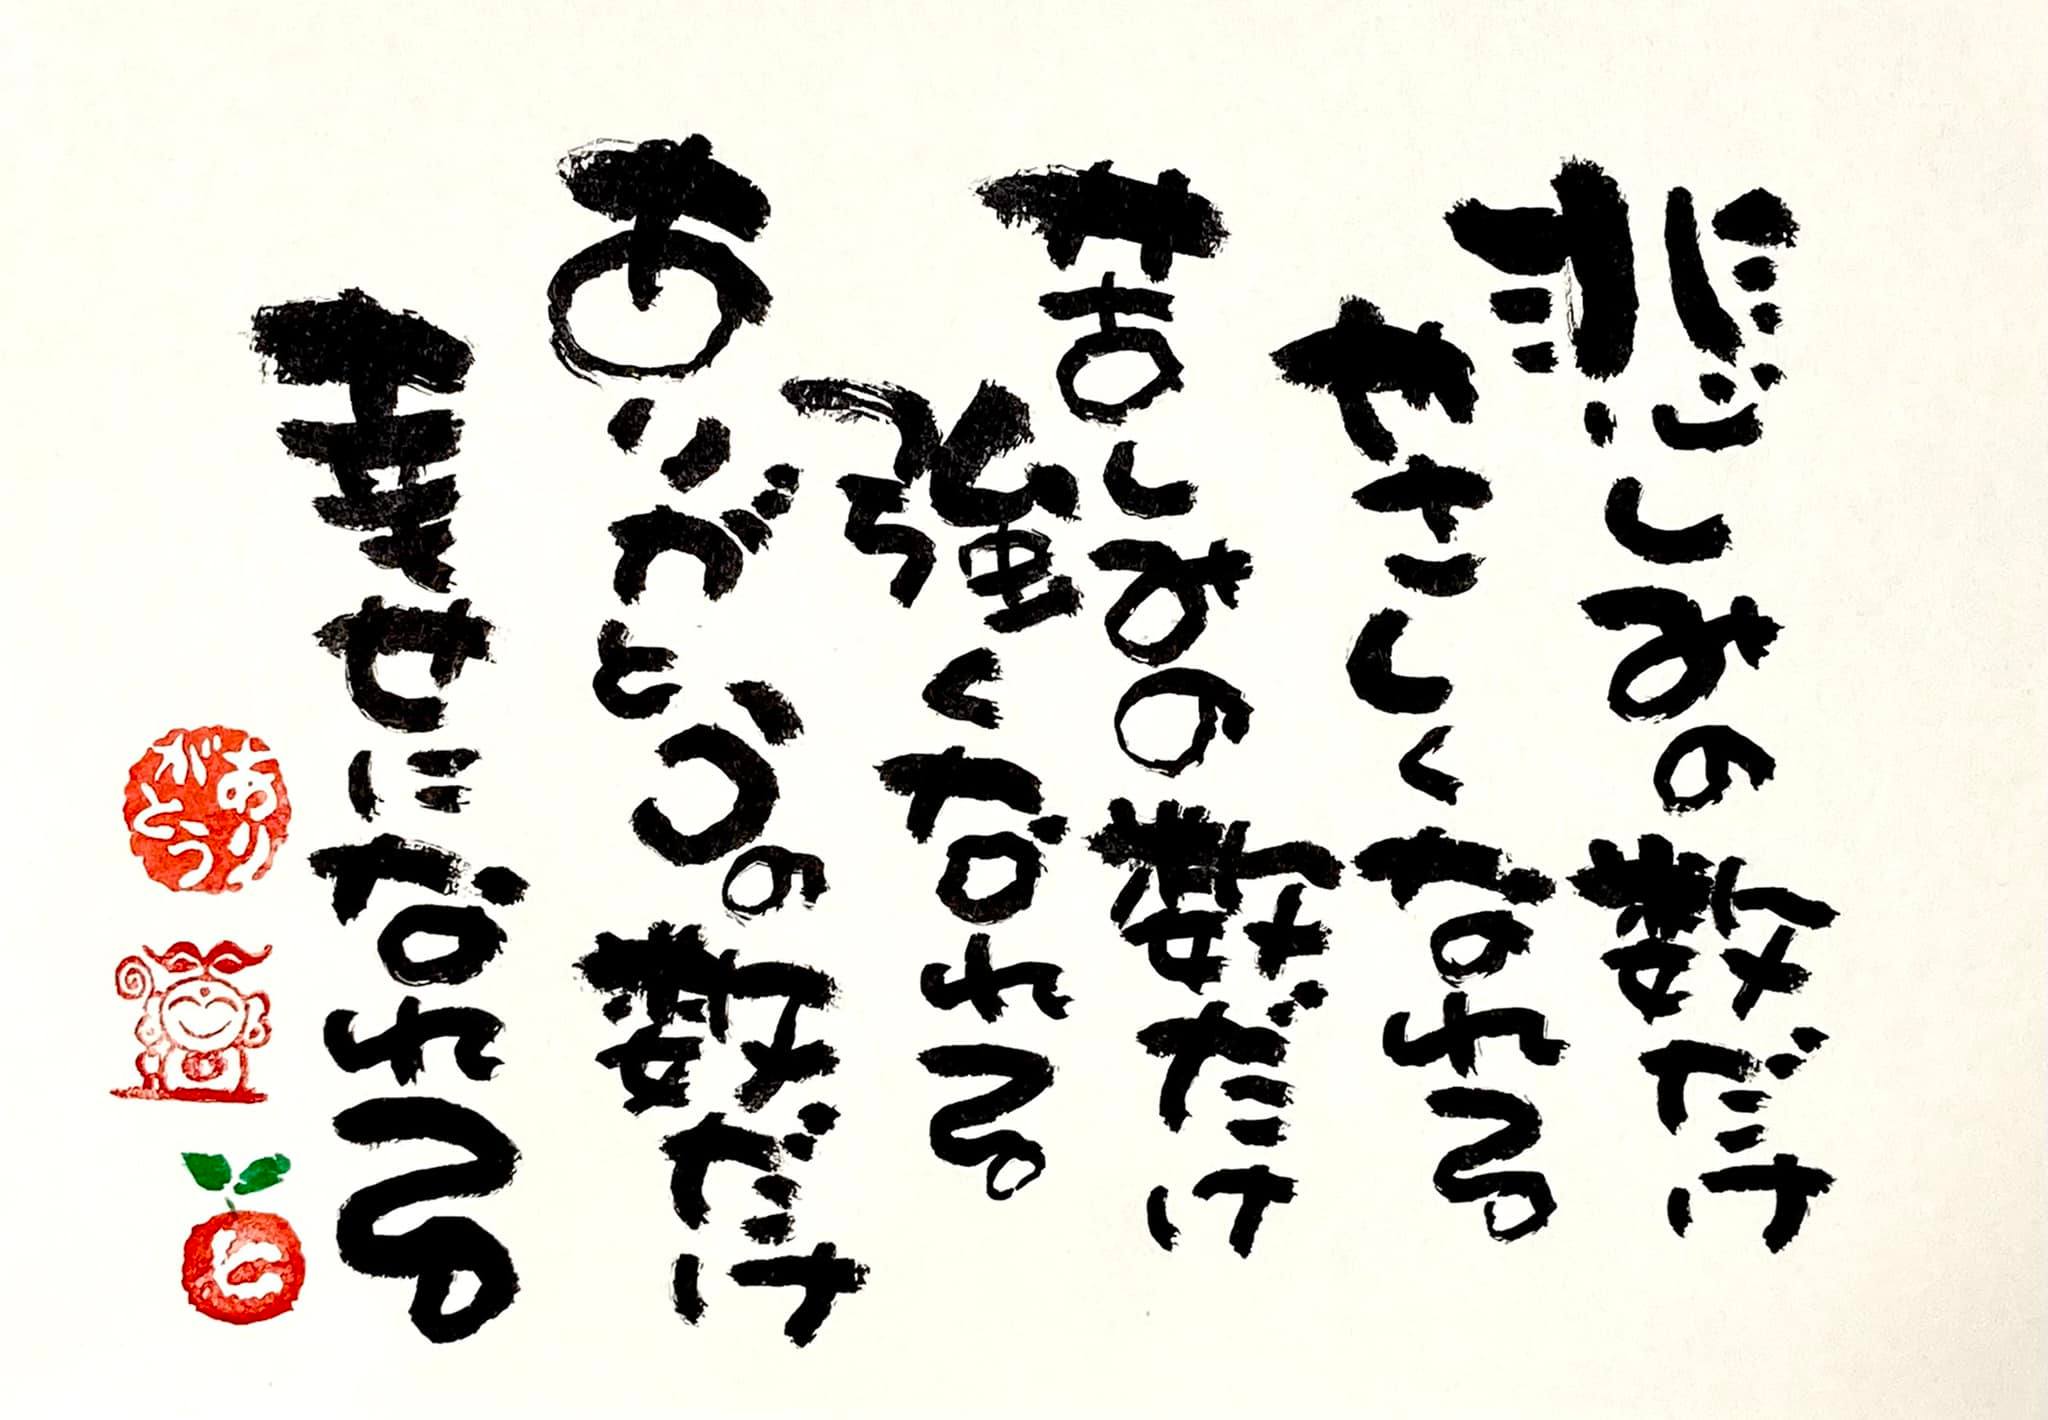 悲しみの数だけ
やさしくなれる
苦しみの数だけ
強くなれる
ありがとうの数だけ
幸せになれる
ありがとう